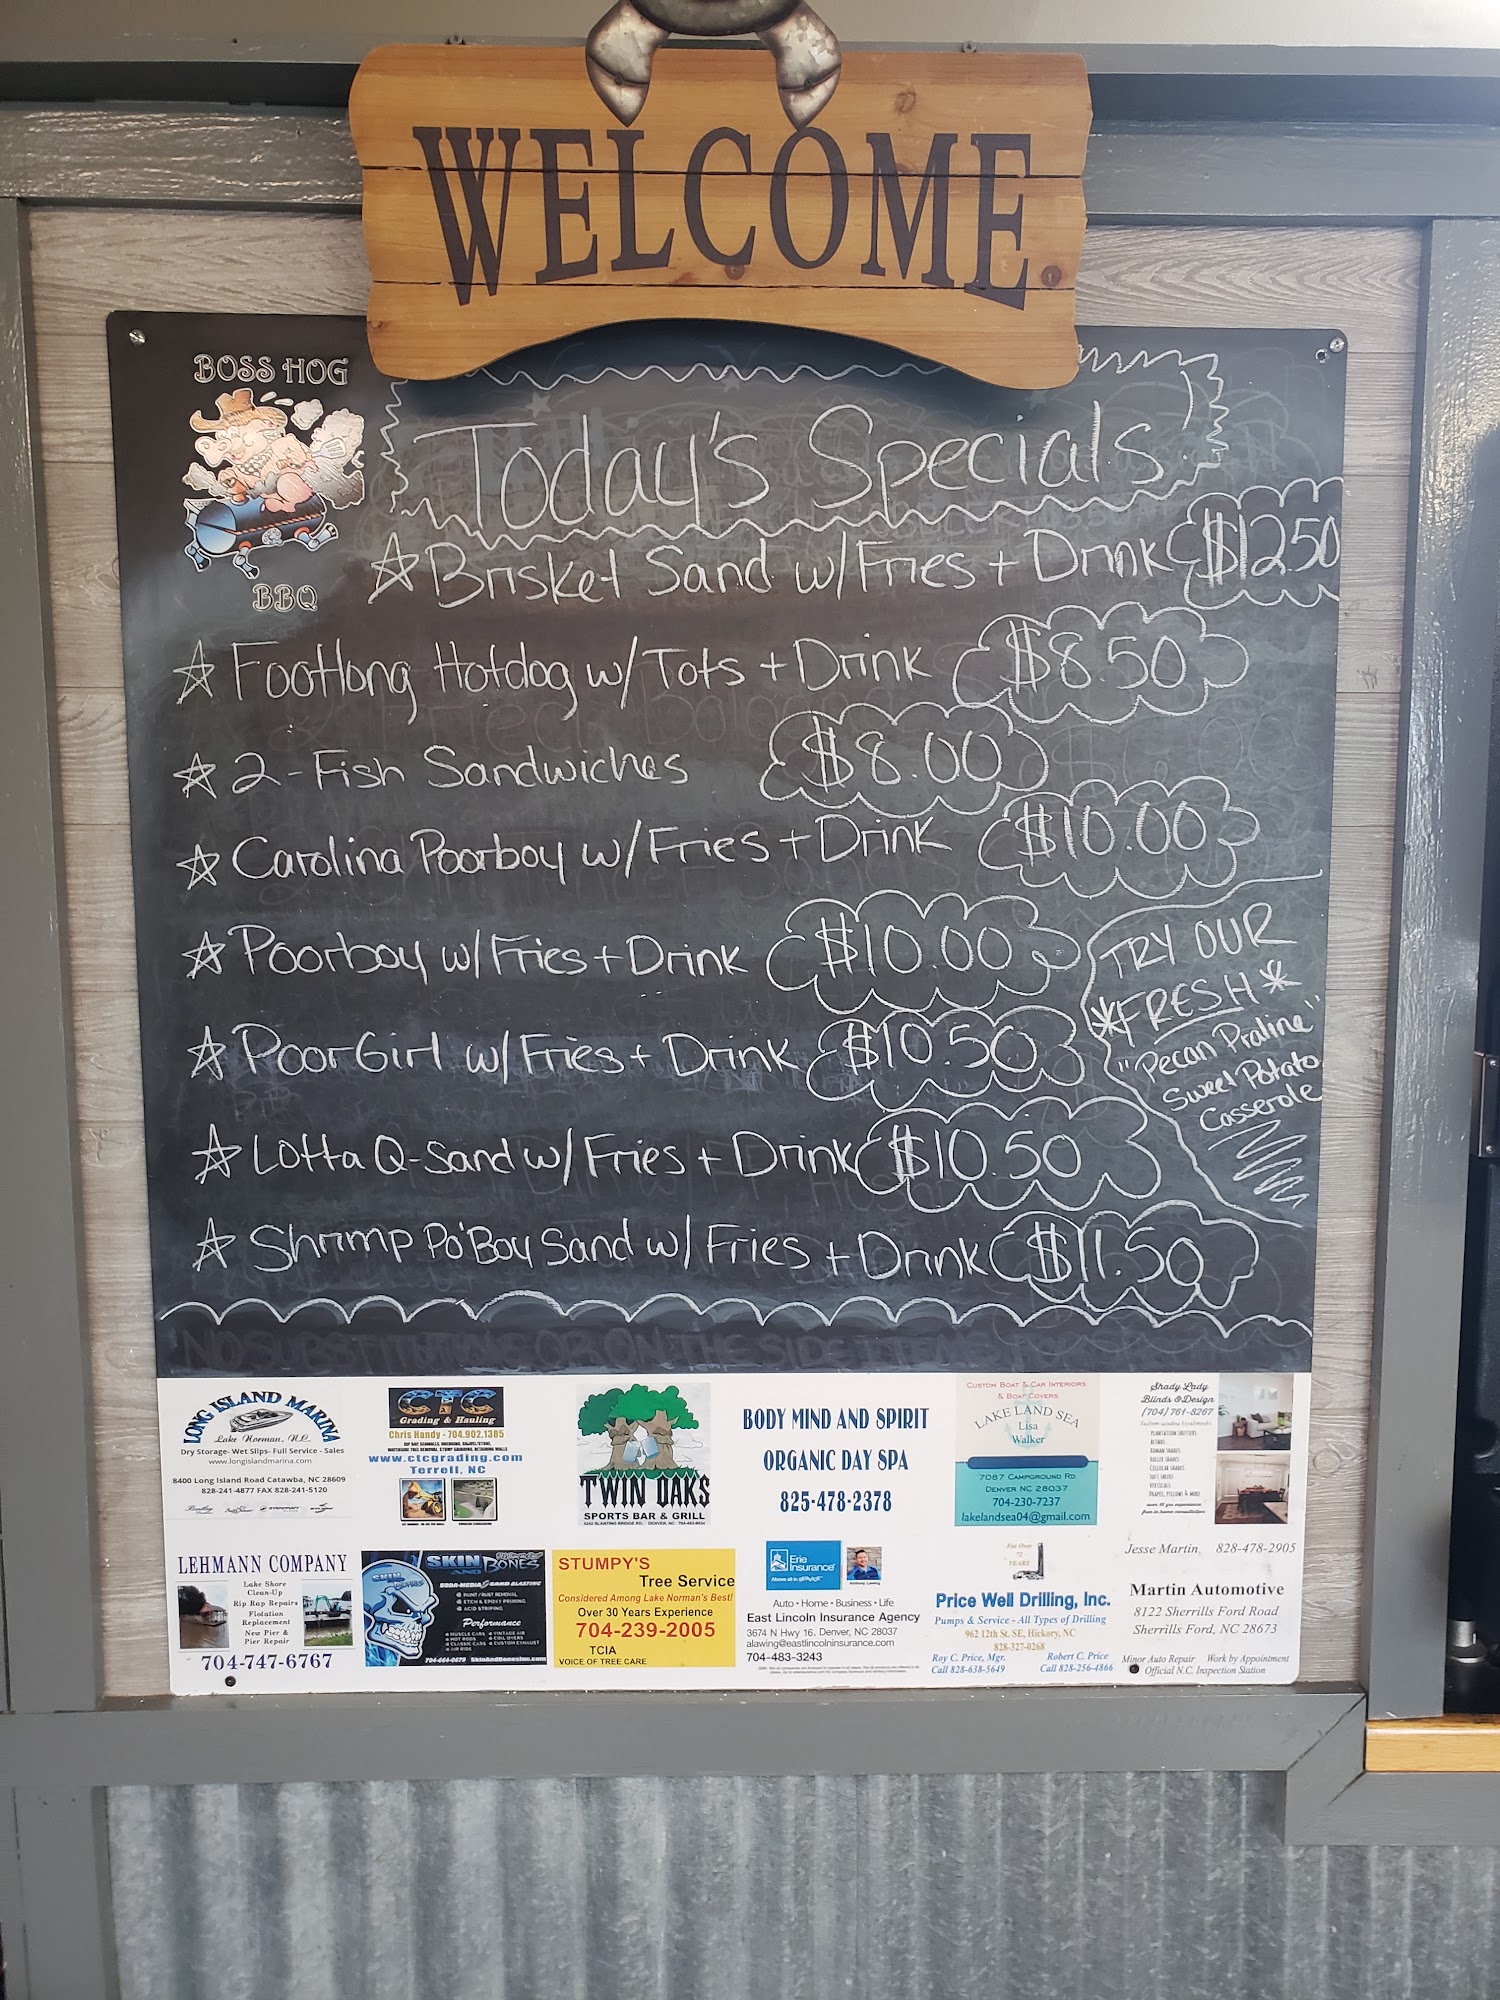 WELCOME
BOSS HOG
BBQ
Today's Specials
Brisket Sand w/Fries + Drink $12.50
Footlong Hotdog w/ Tots + Drink $8.50
2-Fish Sandwiches $8.00
Carolina Poorboy w/Fries + Drink $10.00
Poorboy w/Fries + Drink $10.00
Poor Girl w/Fries + Drink $10.50
Lotta Q-Sand w/ Fries + Drink $10.50
Shrimp Po'Boy Sand w/ Fries + Drink $11.50
TRY OUR
*FRESH*
"Pecan Praline"
Sweet Potato
Casserole
NO SUBSTITUTIONS OR ON THE SIDE ITEMS
LONG ISLAND MARINA
Lake Norman, N.C.
Dry Storage- Wet Slips- Full Service - Sales
www.longislandmarina.com
8400 Long Island Road Catawba, NC 28609
828-241-4877 FAX 828-241-5120
CTC
Grading & Hauling
Chris Handy - 704.902.1385
www.ctcgrading.com
Terrell, NC
TWIN OAKS
SPORTS BAR & GRILL
BODY MIND AND SPIRIT
ORGANIC DAY SPA
825-478-2378
Custom Boat & Car Interiors
& Boat Covers
LAKE LAND SEA
Lisa
Walker
7087 Campground Rd
Denver NC 28037
704-230-7237
lakelandsea04@gmail.com
Shady Lady
Blinds & Design
(704) 761-8267
Custom window treatments
PLANTATION SHUTTERS
BLINDS
ROMAN SHADES
ROLLER SHADES
CELLULAR SHADES
VERTICALS
LEHMANN COMPANY
Lake Shore
Clean-Up
Rip Rap Repairs
Flotation
Replacement
New Pier &
Pier Repair
704-747-6767
SKIN AND BONES
SODA-MEDIA & SAND BLASTING
Performance
704-664-0679 SkinAndBonesInc.com
STUMPY'S
Tree Service
Considered Among Lake Norman's Best!
Over 30 Years Experience
704-239-2005
TCIA
VOICE OF TREE CARE
Erie
Insurance
Auto • Home • Business • Life
East Lincoln Insurance Agency
3674 N Hwy 16, Denver, NC 28037
alawing@eastlincolninsurance.com
704-483-3243
For Over
72
YEARS
Price Well Drilling, Inc.
Pumps & Service - All Types of Drilling
962 12th St. SE, Hickory, NC
828-327-0268
Roy C. Price, Mgr. Robert C. Price
Call 828-638-5649 Call 828-256-4866
Jesse Martin 828-478-2905
Martin Automotive
8122 Sherrills Ford Road
Sherrills Ford, NC 28673
Minor Auto Repair Work by Appointment
Official N.C. Inspection Station